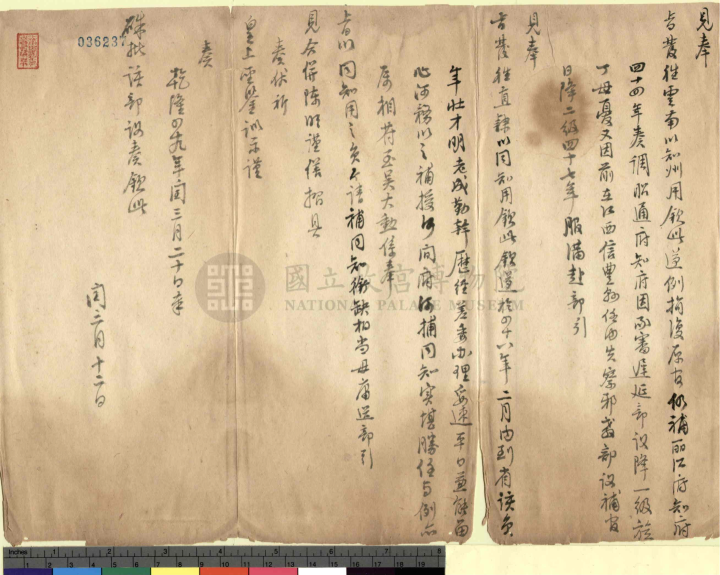 見奉
旨發往雲南以知州用欽此遵例捐復原官仍補麗江府知府
四十四年奏調昭通府知府因承審遲延部議降一級旋
丁母憂又因前在江西信豐縣任內失察邪教部議補官
日降二級四十七年服滿赴部引
見奉
旨發往直隸以同知用欽此欽遵於四十八年二月內到省該員
年壯才明老成勤幹歷經差委辦理妥速平日兼能留
心河務以之補授河間府河捕同知實堪勝任與例亦
屬相符至吳大勳係奉
旨以同知用之員今請補同知銜缺相當毋庸送部引
見合併陳明謹繕摺具
奏伏祈
皇上睿鑒訓示謹
奏
乾隆四十九年閏三月二十日奉
硃批該部議奏欽此
閏三月十二日
036237
國立故宮博物院
NATIONAL PALACE MUSEUM
Inches
Centimetres